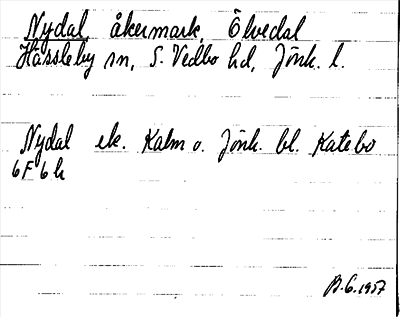 Nydal, åkermark, Ölvedal
Hässleby sn, S. Vedbo hd, Jönk. l.
Nydal ek. Kalm o. Jönk. bl. Katebo
6F 6h
B.G. 1957